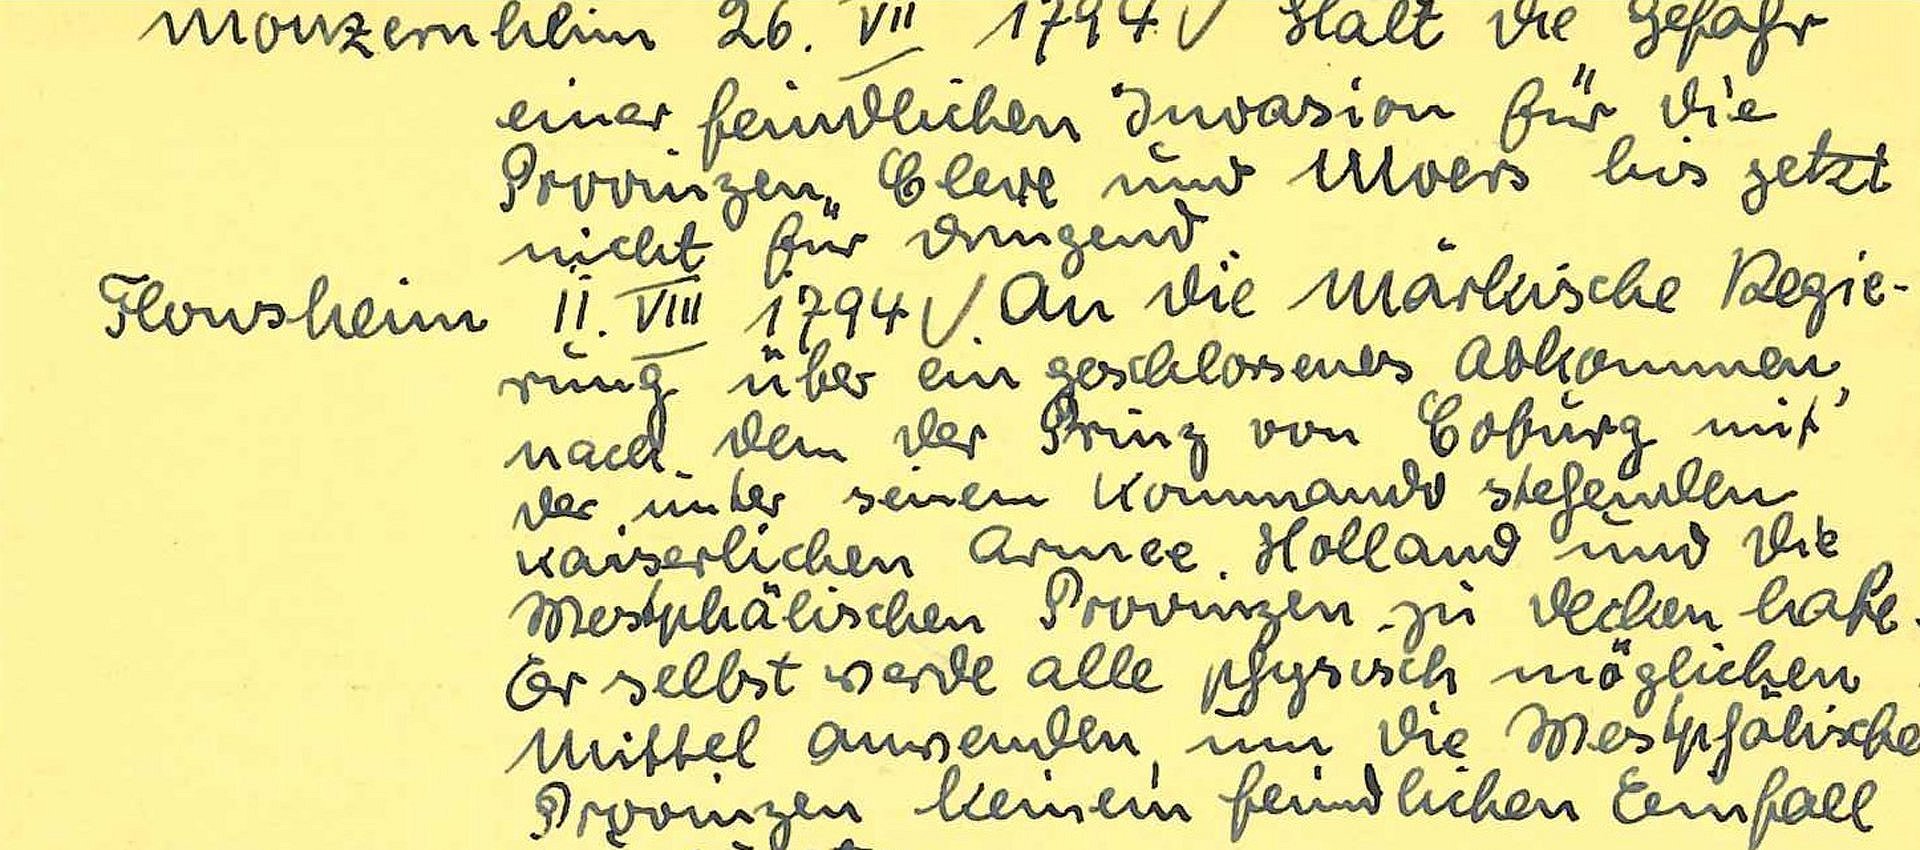 Monzernheim 26. VII 1794 √ Hält die Gefahr
einer feindlichen Invasion für die
Provinzen Cleve und Moers bis jetzt
nicht für dringend.
Flonsheim 11. VIII 1794 √ An die Märkische Regie-
rung über ein geschlossenes Abkommen,
nach dem der Prinz von Coburg mit
der unter seinem Kommando stehenden
kaiserlichen Armee Holland und die
Westphälischen Provinzen zu decken habe.
Er selbst werde alle physisch möglichen
Mittel anwenden, um die Westphälische
Provinzen keinem feindlichen Einfall